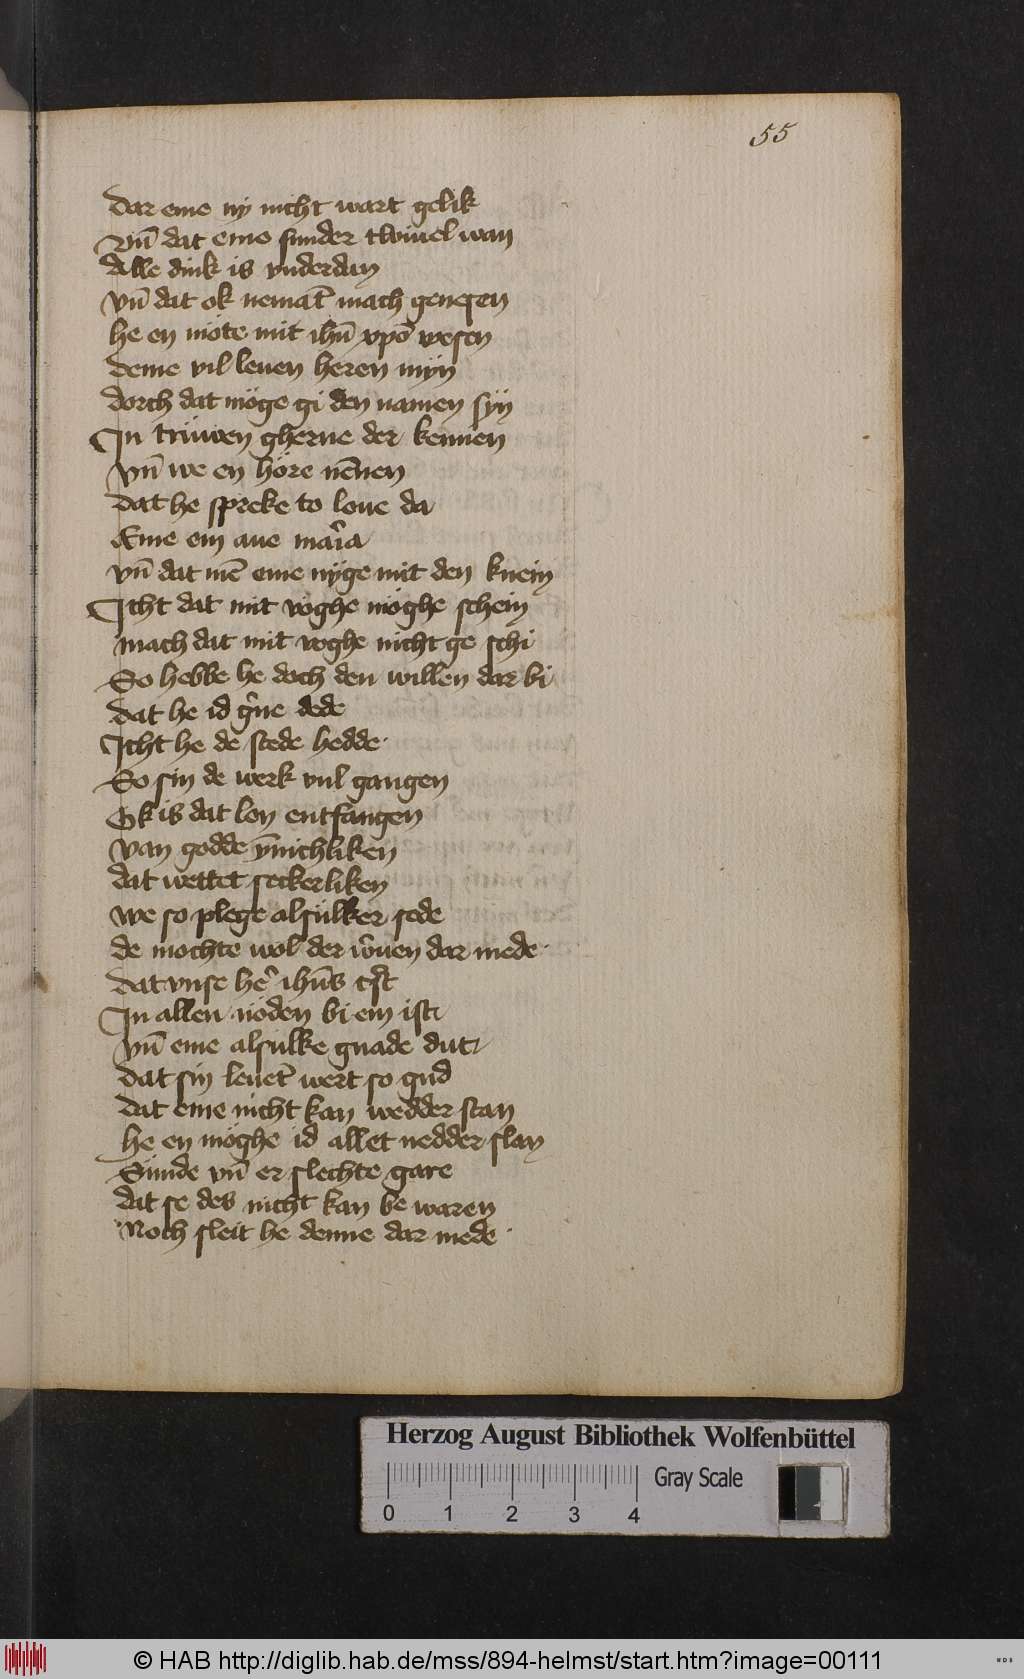 55
dar eme ny nicht wart gelik
Vn̄ dat eme sunder twiuel wan
Alle dink is vnderdan
vn̄ dat ok nemāt mach genesen
he en möte mit ihū xpō wesen
deme vil leuen heren myn
dorch dat möge gi den namen syn
In trüwen gherne der kennen
vn̄ we en höre nēnen
dat he spreke to loue da
Eme em aue maria
vn̄ dat mē eme nyge mit den knein
Icht dat mit vöghe möghe schein
mach dat mit voghe nicht ge schi
So hebbe he doch den willen dar bi
dat he id g̾ne dede
Icht he de stede hedde
So sin de werk vul gangen
Ok is dat lon entfangen
van godde ȳnichliken
dat wettet seckerliken
we so plege alsülker sede
de mochte wol der w̾uen dar mede
dat vnse he̾ ihūs c̄st
In allen nöden bi em ist
vn̄ eme alsulke gnade dut
dat sin leuent wert so gud
dat eme nicht kan wedder stan
he en möghe id allet nedder slan
Sünde vn̄ er slechte gare
dat se des nicht kan be waren
Noch sleit he denne dar mede
Herzog August Bibliothek Wolfenbüttel
0 1 2 3 4 Gray Scale
© HAB http://diglib.hab.de/mss/894-helmst/start.htm?image=00111